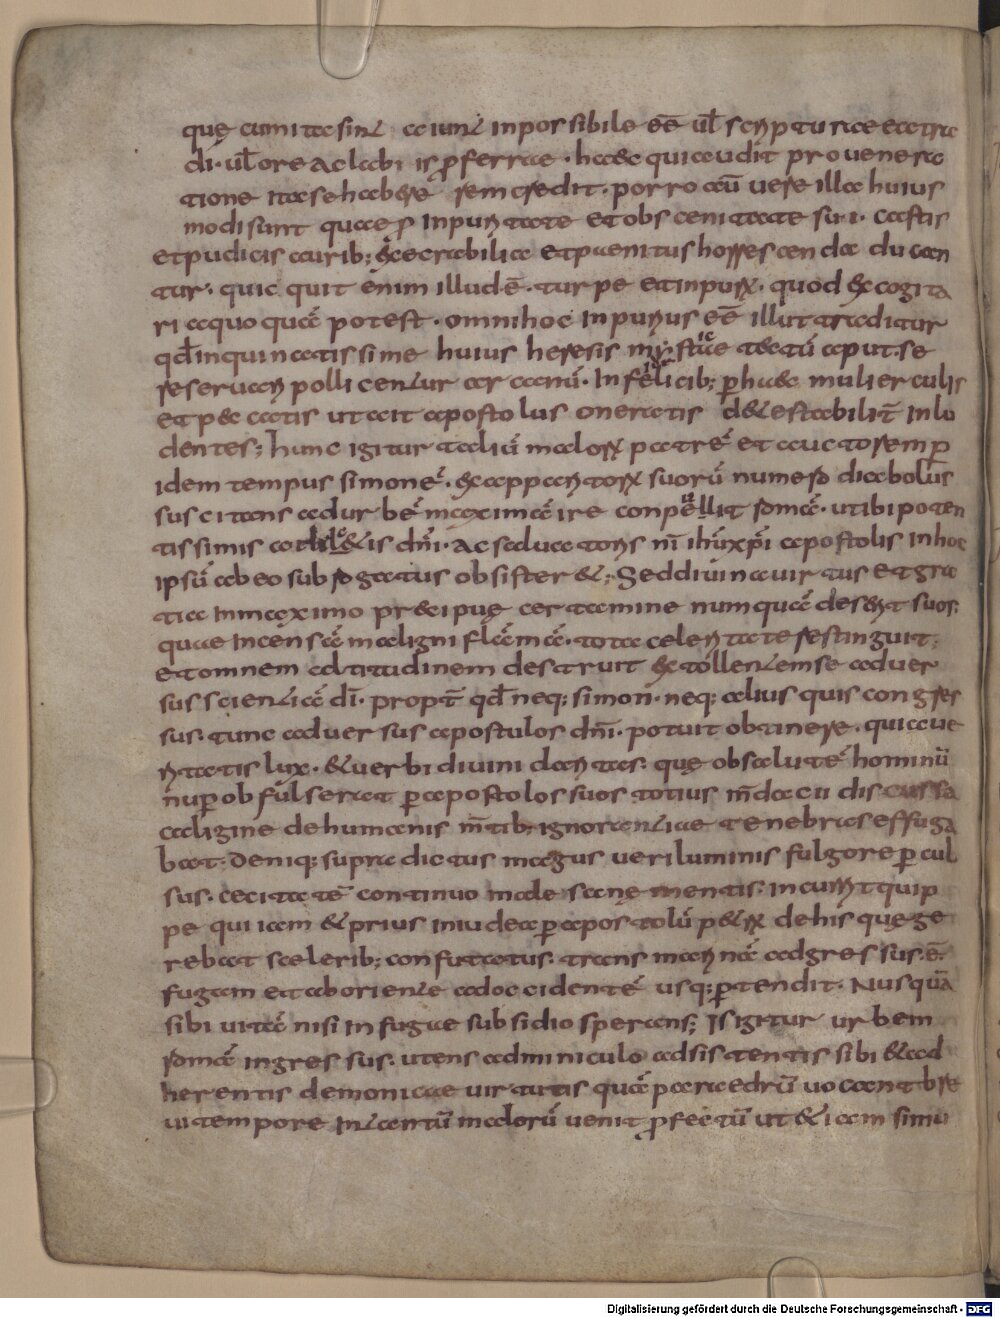 quę cum ita sint aiunt inpossibile eē ul scriptura eatra
di· ul ore ac labiis p̱ferrae · haec qui audit pro venera
tione ita se habere rem credit · porro cū uere illa huius
modi sunt quae p inpuritate et obscenitate sui · castis
et pudicis aurib; execrabilia et paenitus horrescenda ducan
tur · quicquit enim illud ē · turpe et inpurū · quod excogita
ri a quoquā potest · omni hoc inpurius eē illut traditur
qđ inquinatissime huius heresis mystice tectū caput · se
reseruari pollicentur arcanū · Infelicib; p haec mulierculis
et peccatis ut ait apostolus oneratis d&estabilit̄ inlu
dentes; hunc igitur taliū malorū patrē et auctorem p
idem tempus simonē · & apparitorū suorū numero diabolus
suscitans ad urbē maximā ire conpellit romā · ut ibi poten
tissimis athletis dn̄i · ac seductoris nī ihū xp̄i apostolis in hoc
ipsū ab eo subrogatus obsister& ; Sed diuina uirtus et gra
tia in maximo pr&ipuę certamine numquā deserit suos;
quae incensā maligni flammā · tota celeritate restinguit;
et omnem altitudinem destruit & tollentem se aduer
sus scientiā dī · propt̄ qđ neq; simon · neq; alius quis congres
sus · tunc aduersus apostulos dn̄i · potuit obtinere · quia ue
ritatis lux · & uerbi diuini claritas · quę ob salutē hominū
nuper obfulserat p apostolos suos totius m̄daeu discussa
caligine de humanis m̄tib; ignorantiae tenebras effuga
bat · Deniq; supra dictus magus ueri luminis fulgore p cul
sus · cecitatē continuo male sanę mentis · incurrit quip
pe qui iam & prius in iudea p apostolū p&rū de his quę ge
rebat scelerib; confutatus · trans marinā adgressus · ē
fugam et ab oriente ad occidentē usq; p tendit · Nusquā
sibi uitā nisi in fugae subsidio sperans; Is igitur urbem
romā ingressus · utens adminiculo adsistentis sibi & ad
herentis demonicae uirtutis quā paraedrū uocant bre
ui tempore In tantū malorū uenit p̱fectū ut & iam simu
Digitalisierung gefördert durch die Deutsche Forschungsgemeinschaft - DFG